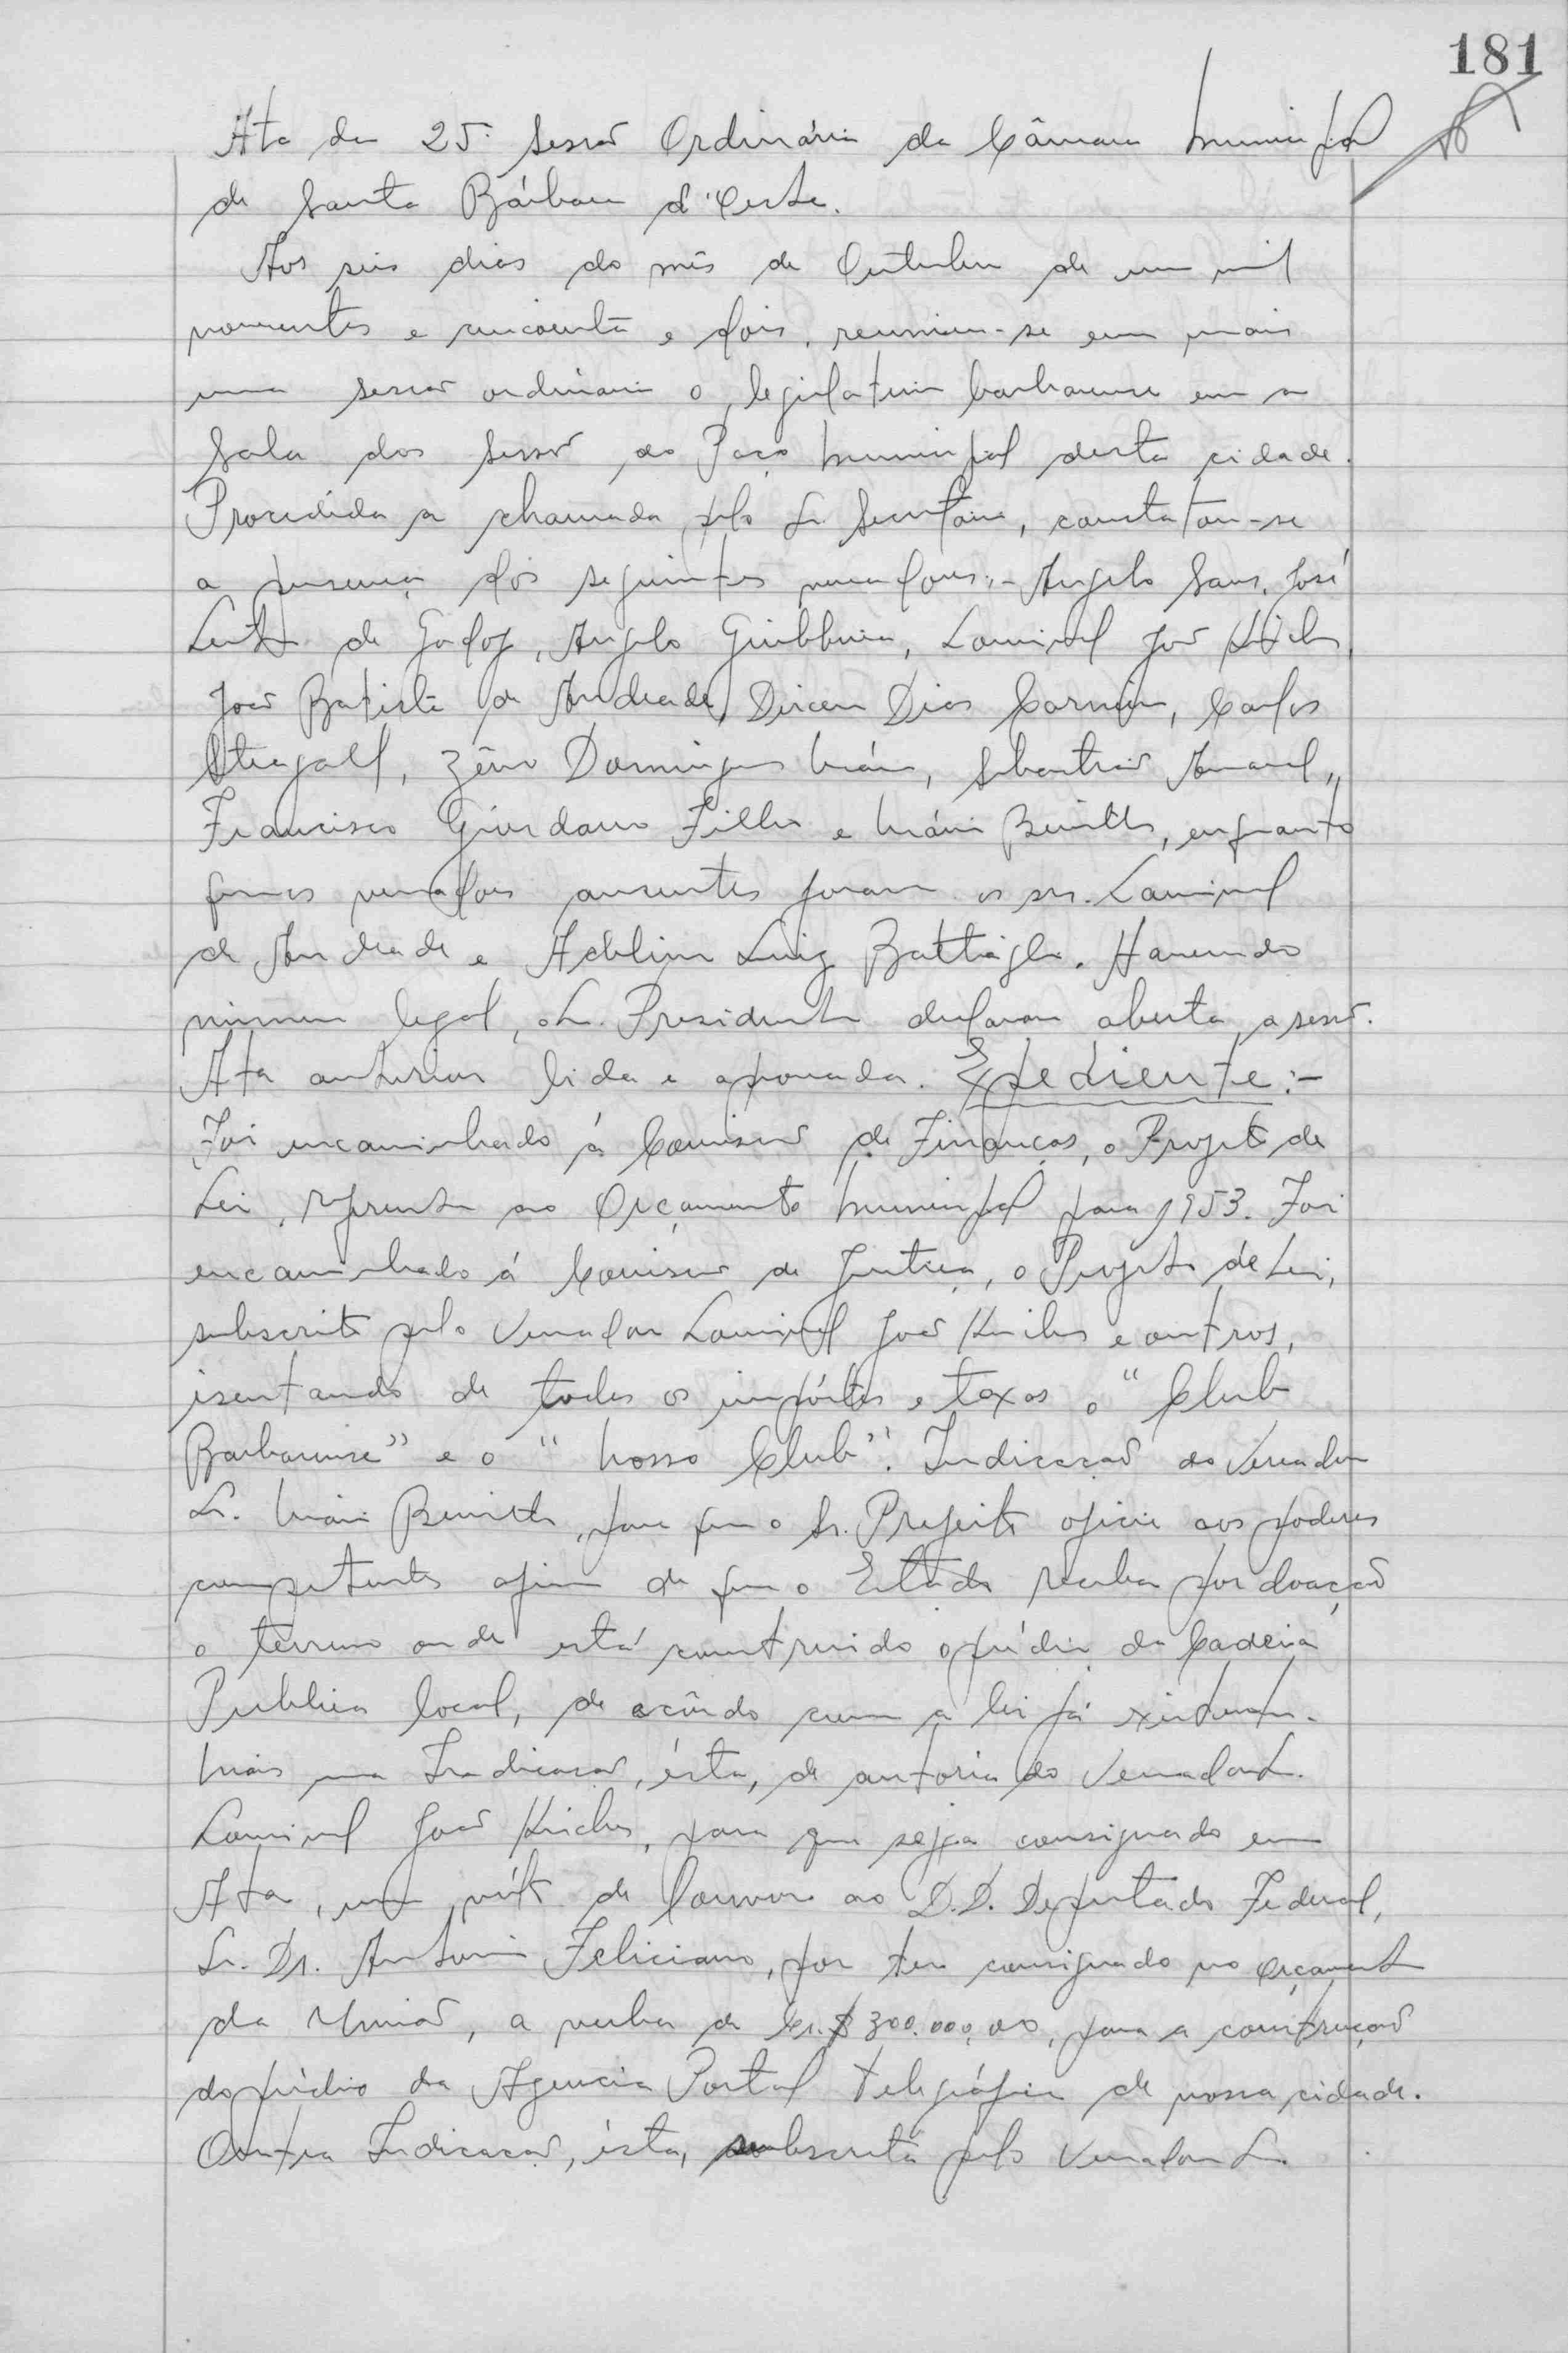 181
Ata da 25ª Sessão Ordinária da Câmara Municipal
de Santa Bárbara d'Oeste.
Aos seis dias do mês de Outubro de um mil
novecentos e cincoenta e dois, reuniu-se em mais
uma sessão ordinária o legislativo barbarense em a
Sala das Sessões do Paço Municipal desta cidade.
Procedida a chamada pelo Sr. Secretário, constatou-se
a presença dos seguintes vereadores:- Angelo Sans, José
Leite de Godoy, Angelo Giubbina, Lourival João
João Batista de Andrade, Dirceu Dias Carneiro, Carlos
Steagall, Zêno Domingues Maia, Sebastião Amaral,
Francisco Giordano Filho e Mário Benitte, enquanto
que os vereadores ausentes foram os srs. Lourival
de Andrade e Luiz Battagla. Havendo
número legal, o Sr. Presidente declarou aberta a sessão.
Ata anterior lida e aprovada. Expediente:-
Foi encaminhado á Comissão de Finanças, o Projeto de
Lei, referente ao Orçamento Municipal para 1953. Foi
encaminhado á Comissão de Justiça, o Projeto de Lei,
subscrito pelo Vereador Lourival João e outros,
isentando de todos os impóstos e taxas o "Club
Barbarense" e o "Nosso Club". Indicação do Vereador
Sr. Mário Benitte, para que o Sr. Prefeito oficie aos poderes
competentes afim de que o Estado receba por doação
o terreno onde está construido o prédio da Cadeia
Publica local, de acôrdo com a lei já existente.
Mais uma Indicação, ésta, de autoria do Vereador Sr.
Lourival João, para que seja consignado em
Ata, um vóto de louvor ao D.D. Deputado Federal,
Sr. Dr. Antonio Feliciano, por ter consignado no orçamento
da União, a verba de Cr.$ 300.000,00, para a construção
do prédio da Agencia Postal Telegráfica de nossa cidade.
Outra Indicação, ésta, subscrita pelo Vereador Sr.